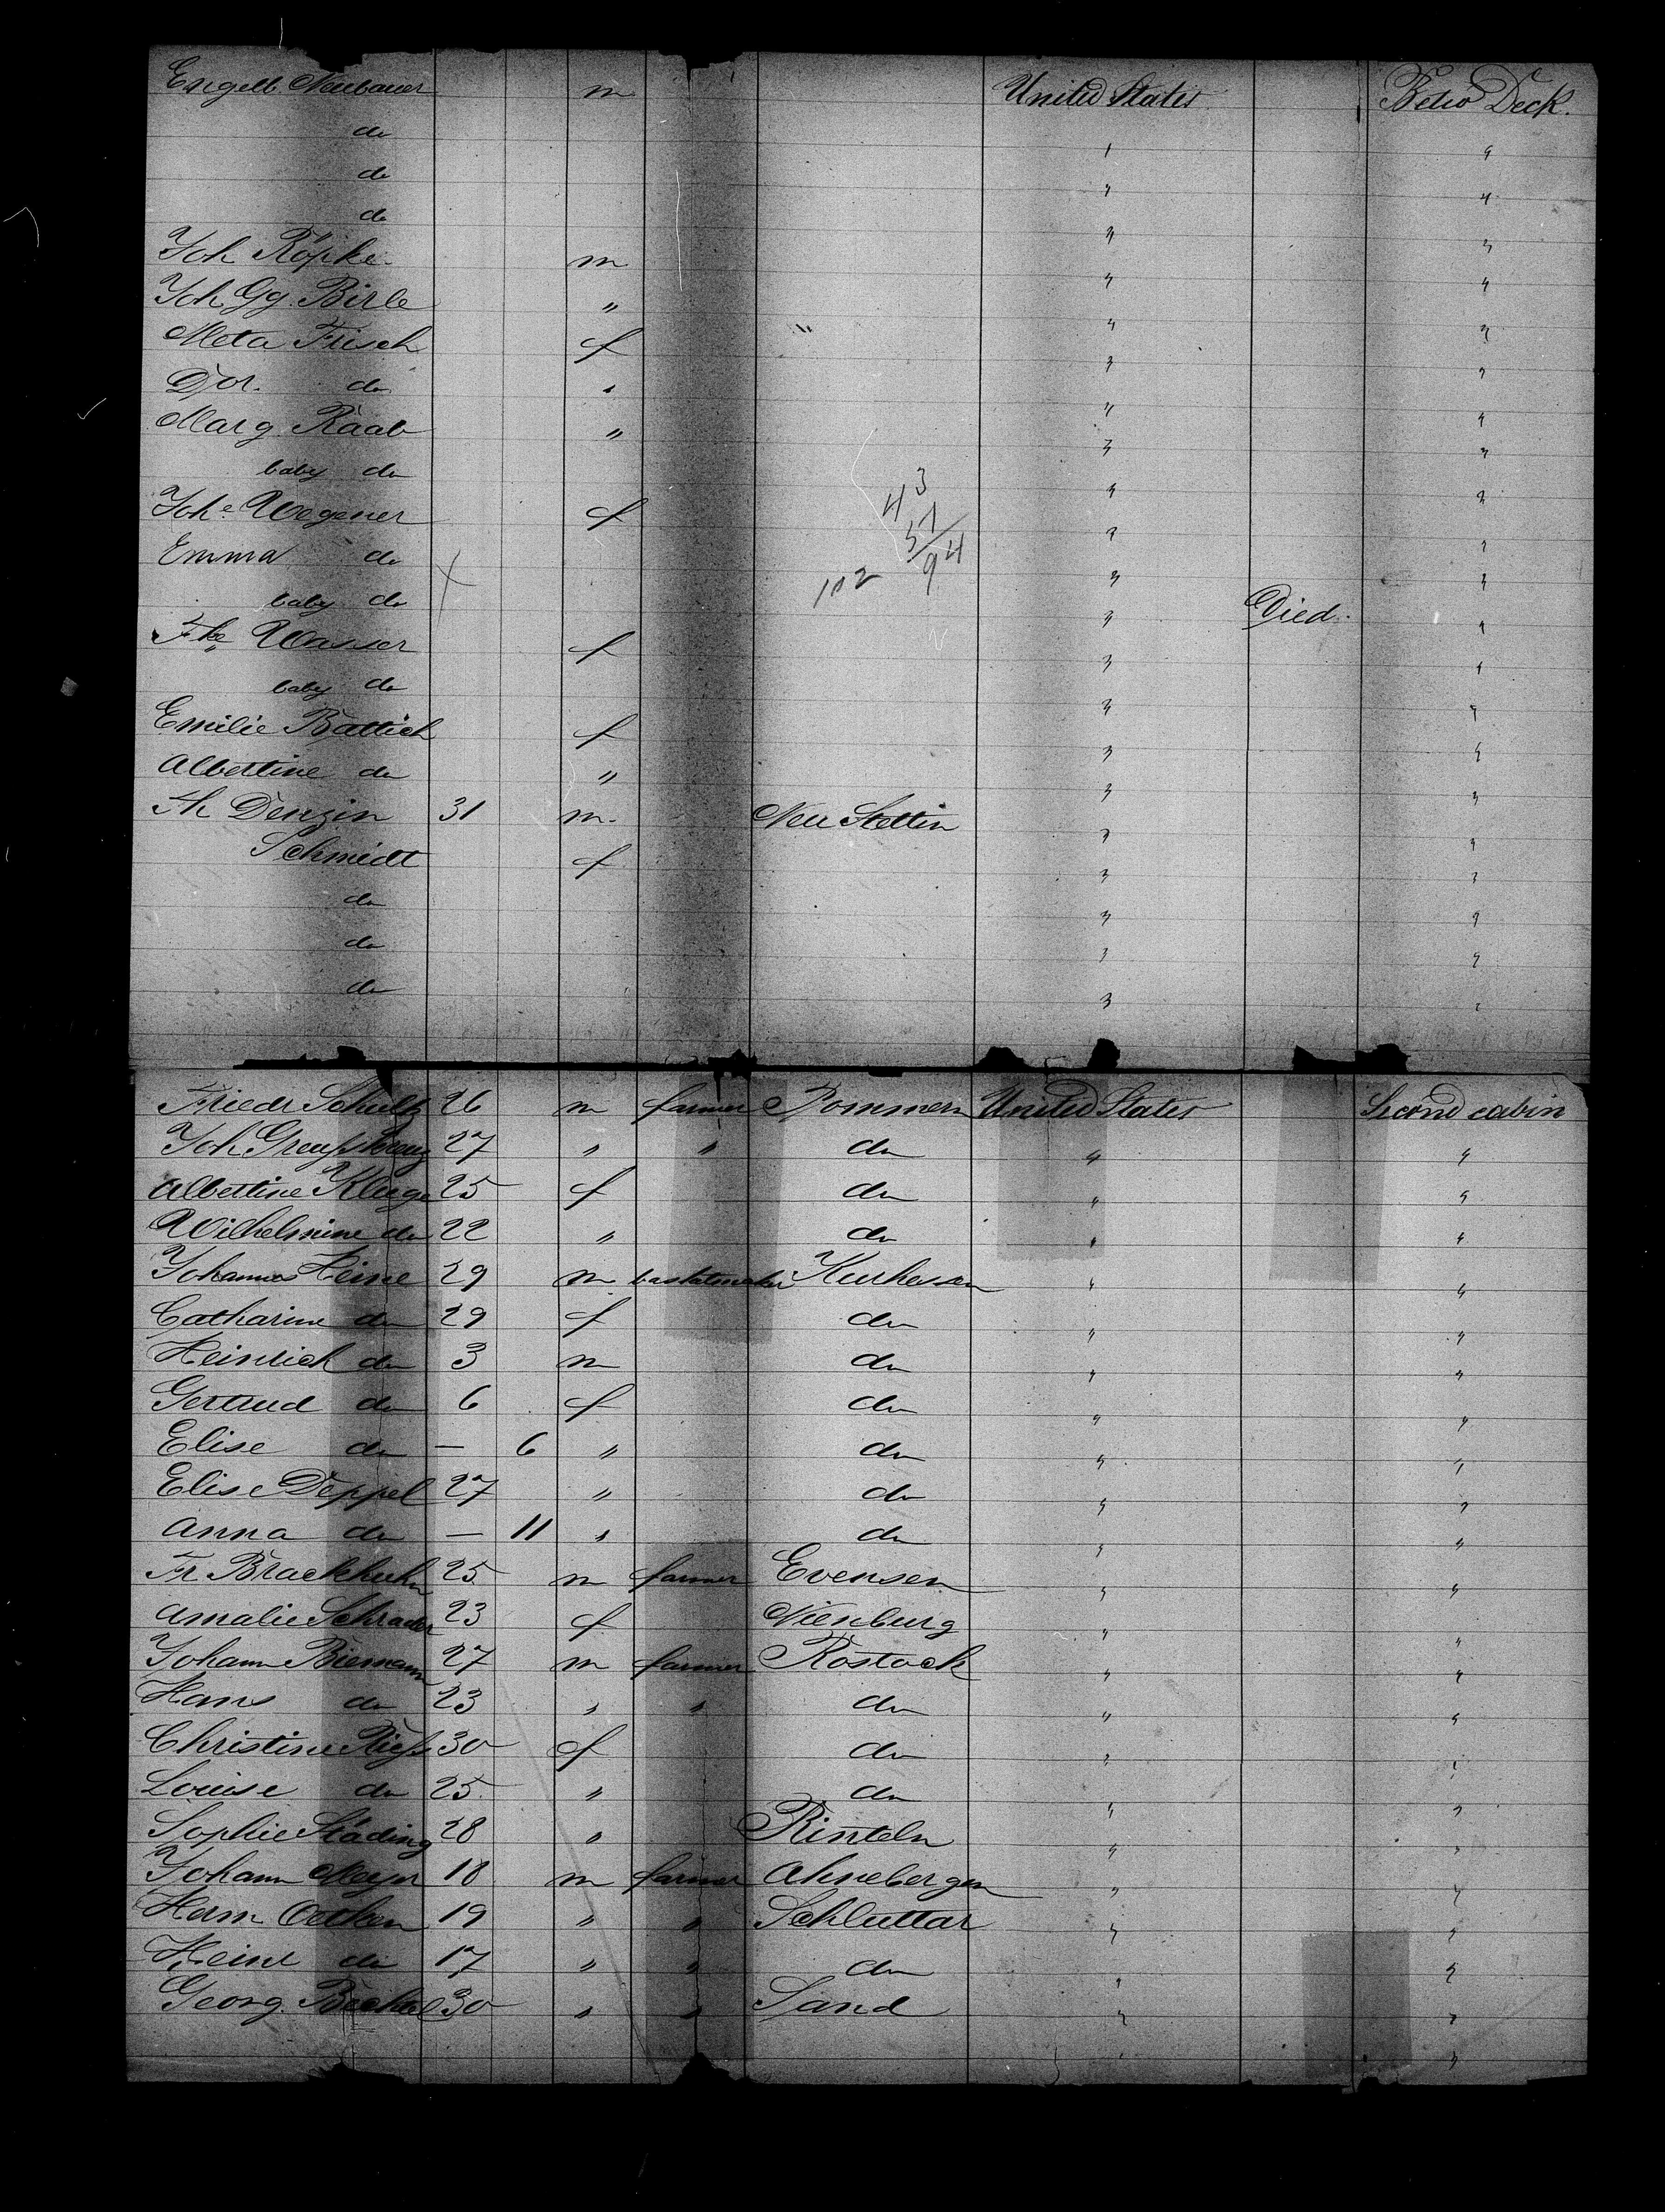 Engelb. Neubauer m United States Betw Deck.
do " "
do " "
do " "
Joh Röpke m " "
Joh. Gg. Birle " " "
Meta Frisch f " "
Dor. do " " "
Marg. Raab " " "
baby do " "
Johe Wegener f " "
Emma do " "
baby do " Died. "
Fke Wasser f " "
baby do " "
Emilie Battich f " "
Albertine do " " "
Fh Denzin 31 m. Neu Stettin " "
Schmidt f " "
do " "
do " "
do " "
43
51
94
102
Friedr Schultz 26 m farmer Pommern United States Second cabin
Joh 27 " " do " "
Albertine Kluge 25 f do " "
Wilhelmine do 22 " do " "
Johannes Heine 29 m basketmaker Kurhessen " "
Catharine do 29 f do " "
Heinrich do 3 m do " "
Gertrud do 6 f do " "
Elise do — 6 " do " "
Elise Deppel 27 " do " "
Anna do — 11 " do " "
Fr Brackhuhn 25 m farmer Evensen " "
Amalie Schrader 23 f Nienburg " "
Johann Biemann 27 m farmer Rostock " "
Hans do 23 " " do " "
Christine Riess 30 f do " "
Louise do 25 " do " "
Sophie Stading 28 " Rinteln " "
Johann Meyer 18 m farmer Ahnebergen " "
Herm Oetken 19 " " Schluttar " "
Heinr do 17 " " do " "
Georg Bechtel 30 " " Sand " "